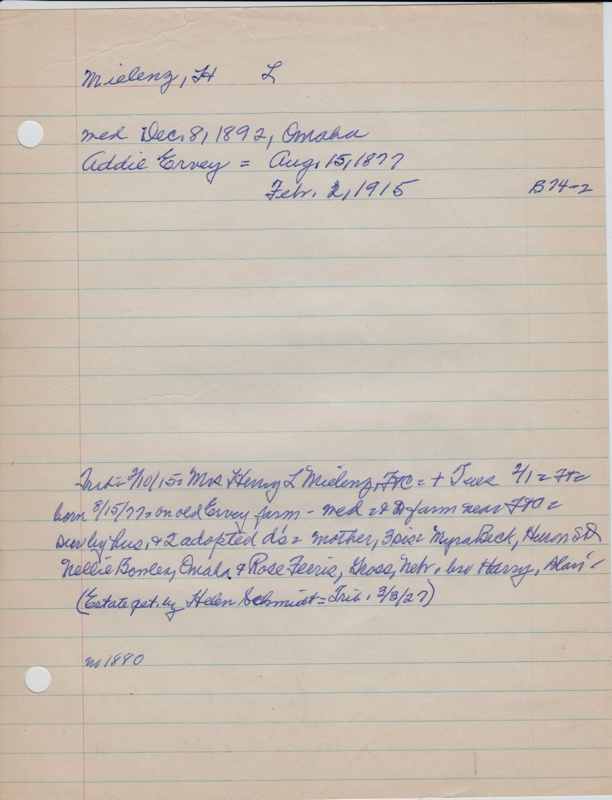 Mielenz, H L
med Dec. 8, 1892, Omaha
Addie Ervey = Aug. 15, 1877
Febr. 2, 1915 B74-2
Trib = 2/10/15 = Mrs Henry L Mielenz, FtC = + Tues 2/ =
born 8/15/77 = on old Ervey farm - med = & to farm near FtC =
surv by hus. & 2 adopted d's = mother, 3 sis = Myra Beck, Huron SD
Nellie Bowley, Omaha & Rose Feeris, Gross, Nebr. bro Harry,
(Estate pet. by Helen Schmidt = Trib. 3/3/27)
no 1880